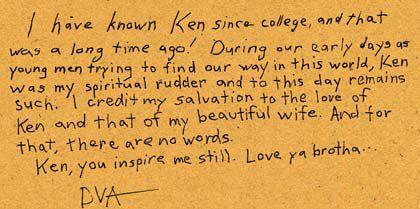 I have known Ken since college, and that
was a long time ago! During our early days as
young men trying to find our way in this world, Ken
was my spiritual rudder and to this day remains
such. I credit my salvation to the love of
Ken and that of my beautiful wife. And for
that, there are no words.
Ken, you inspire me still. Love ya brotha...
DVA